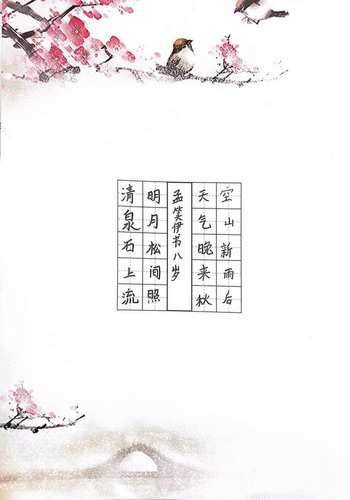 空山新雨后
天气晚来秋
孟笑伊书八岁
明月松间照
清泉石上流